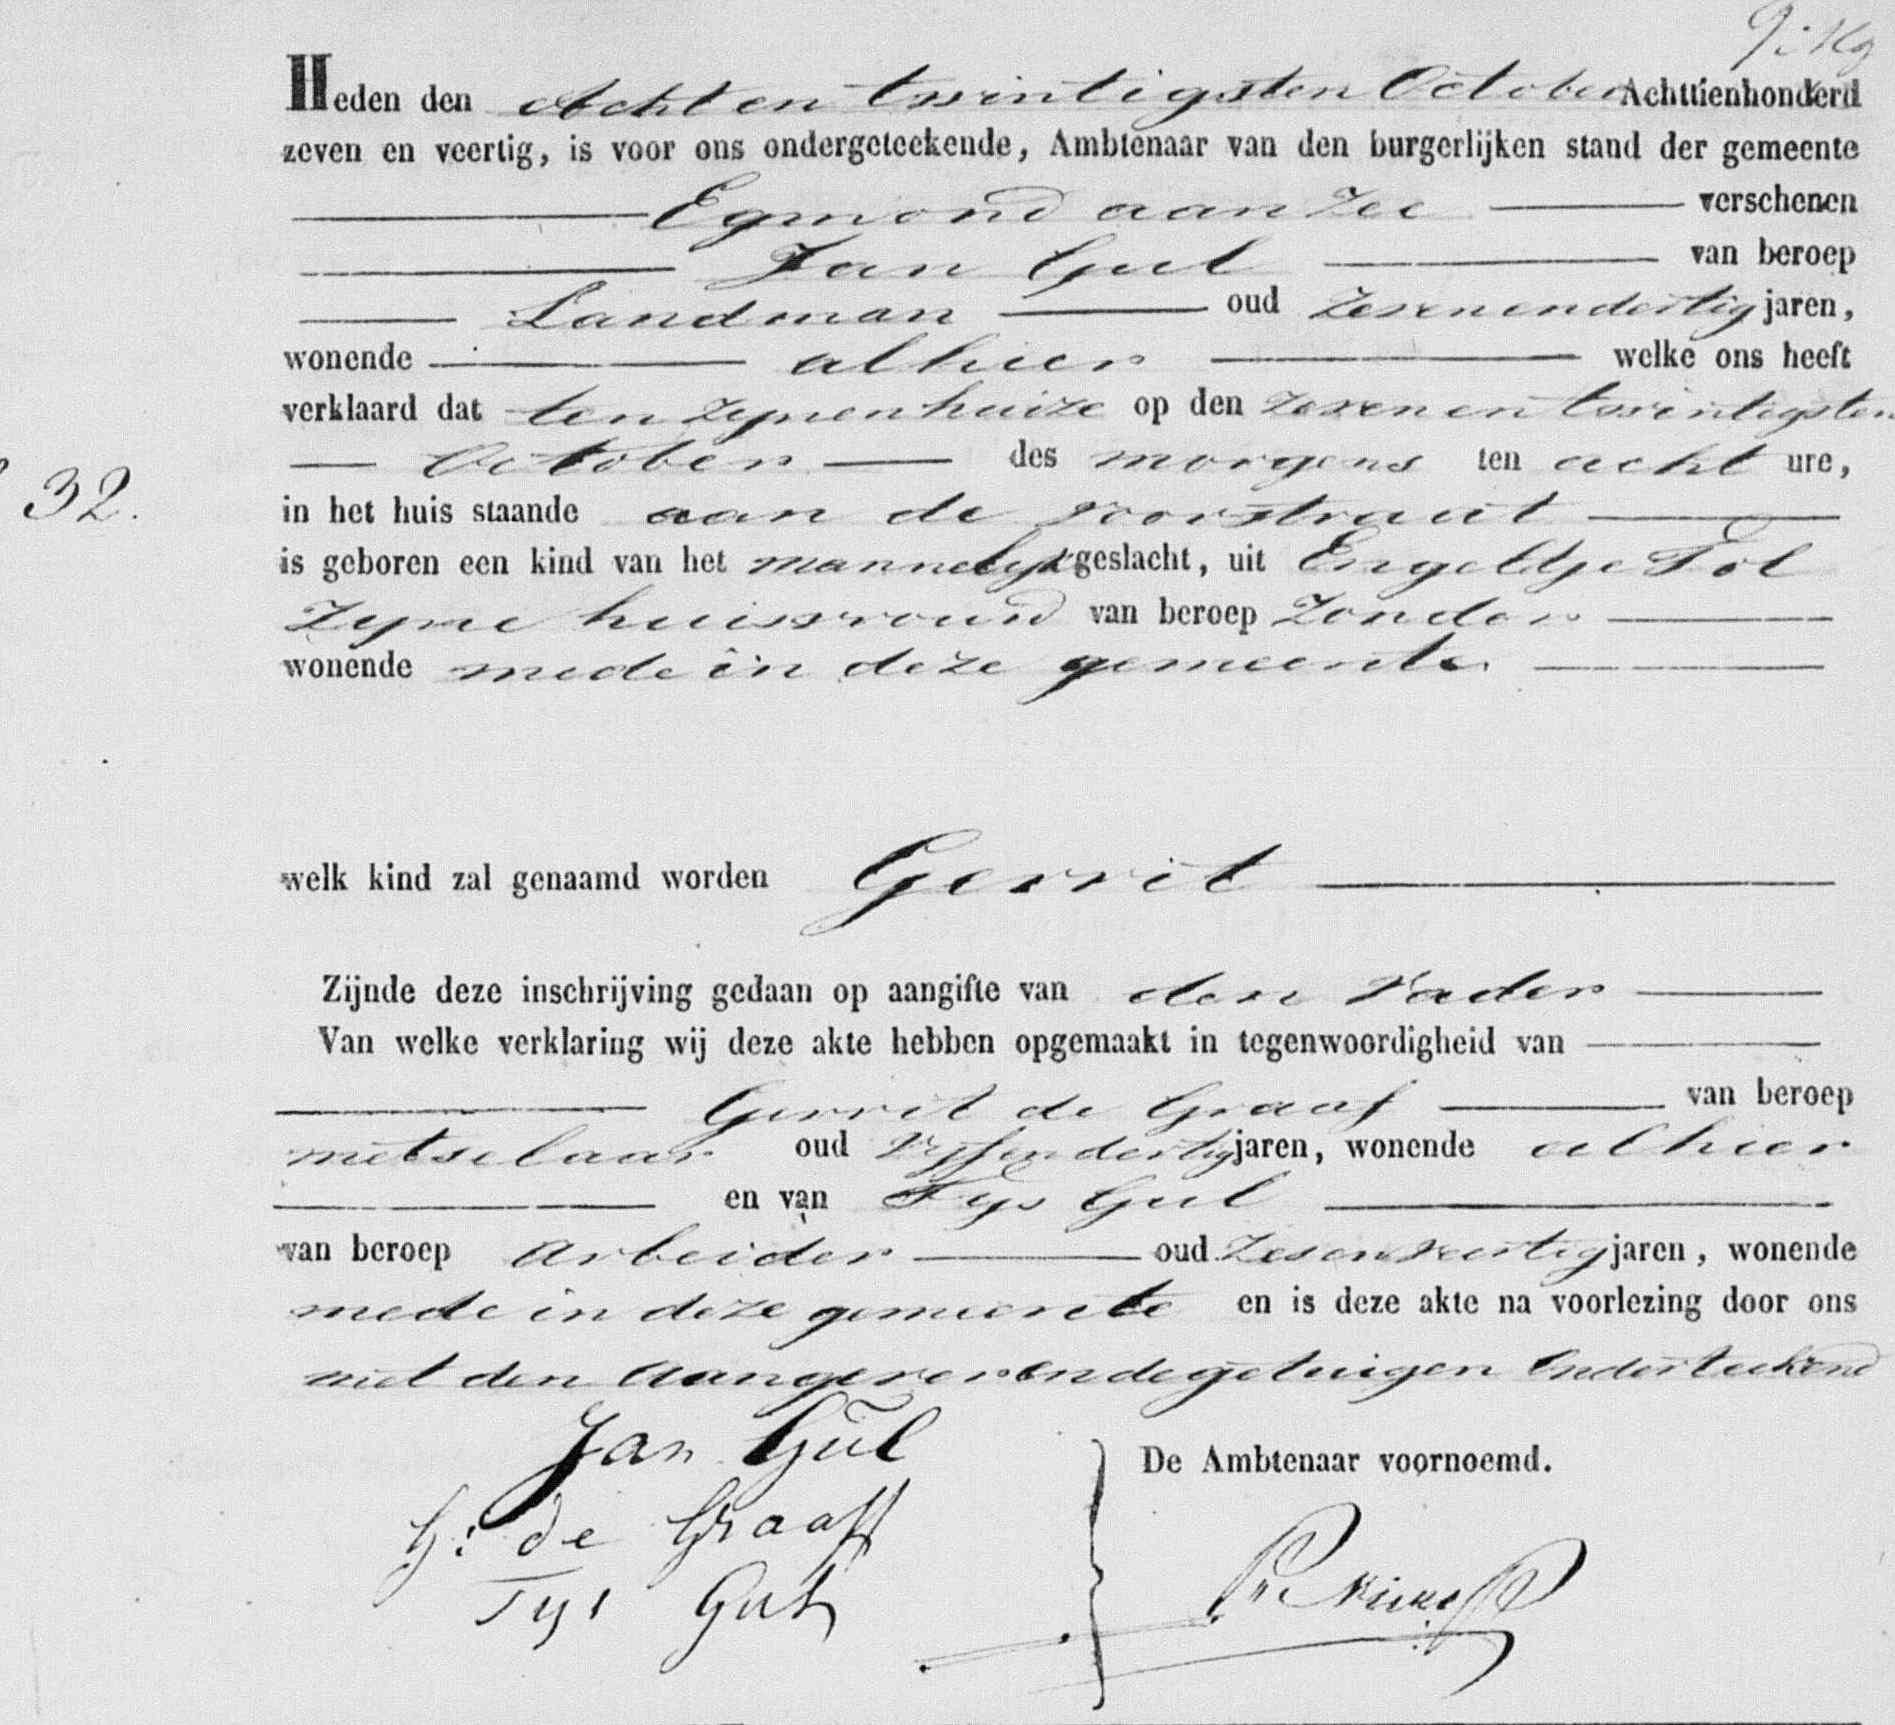 Heden den Acht en twintigsten October Achttienhonderd
zeven en veertig, is voor ons ondergeteekende, Ambtenaar van den burgerlijken stand der gemeente
Egmond aan Zee verschenen
Jan Gul van beroep
Landman oud zevenendertig jaren,
wonende alhier welke ons heeft
verklaard dat ten zynen huize op den zevenen twintigsten
October des morgens ten acht ure,
32.
in het huis staande aan de voorstraat
is geboren een kind van het mannelyk geslacht, uit Engeltje Tol
Zyne huisvrouw van beroep Zonder
wonende mede in deze gemeente
welk kind zal genaamd worden Gerrit
Zijnde deze inschrijving gedaan op aangifte van den Vader
Van welke verklaring wij deze akte hebben opgemaakt in tegenwoordigheid van
Gerrit de Graaf van beroep
metselaar oud Vyfendertig jaren, wonende alhier
en van Tys Gul
van beroep Arbeider oud Zesenveertig jaren, wonende
mede in deze gemeente en is deze akte na voorlezing door ons
met den Aangever en de getuigen Onderteekend
Jan Gul
De Ambtenaar voornoemd.
G: de Graaff
Tys Gul